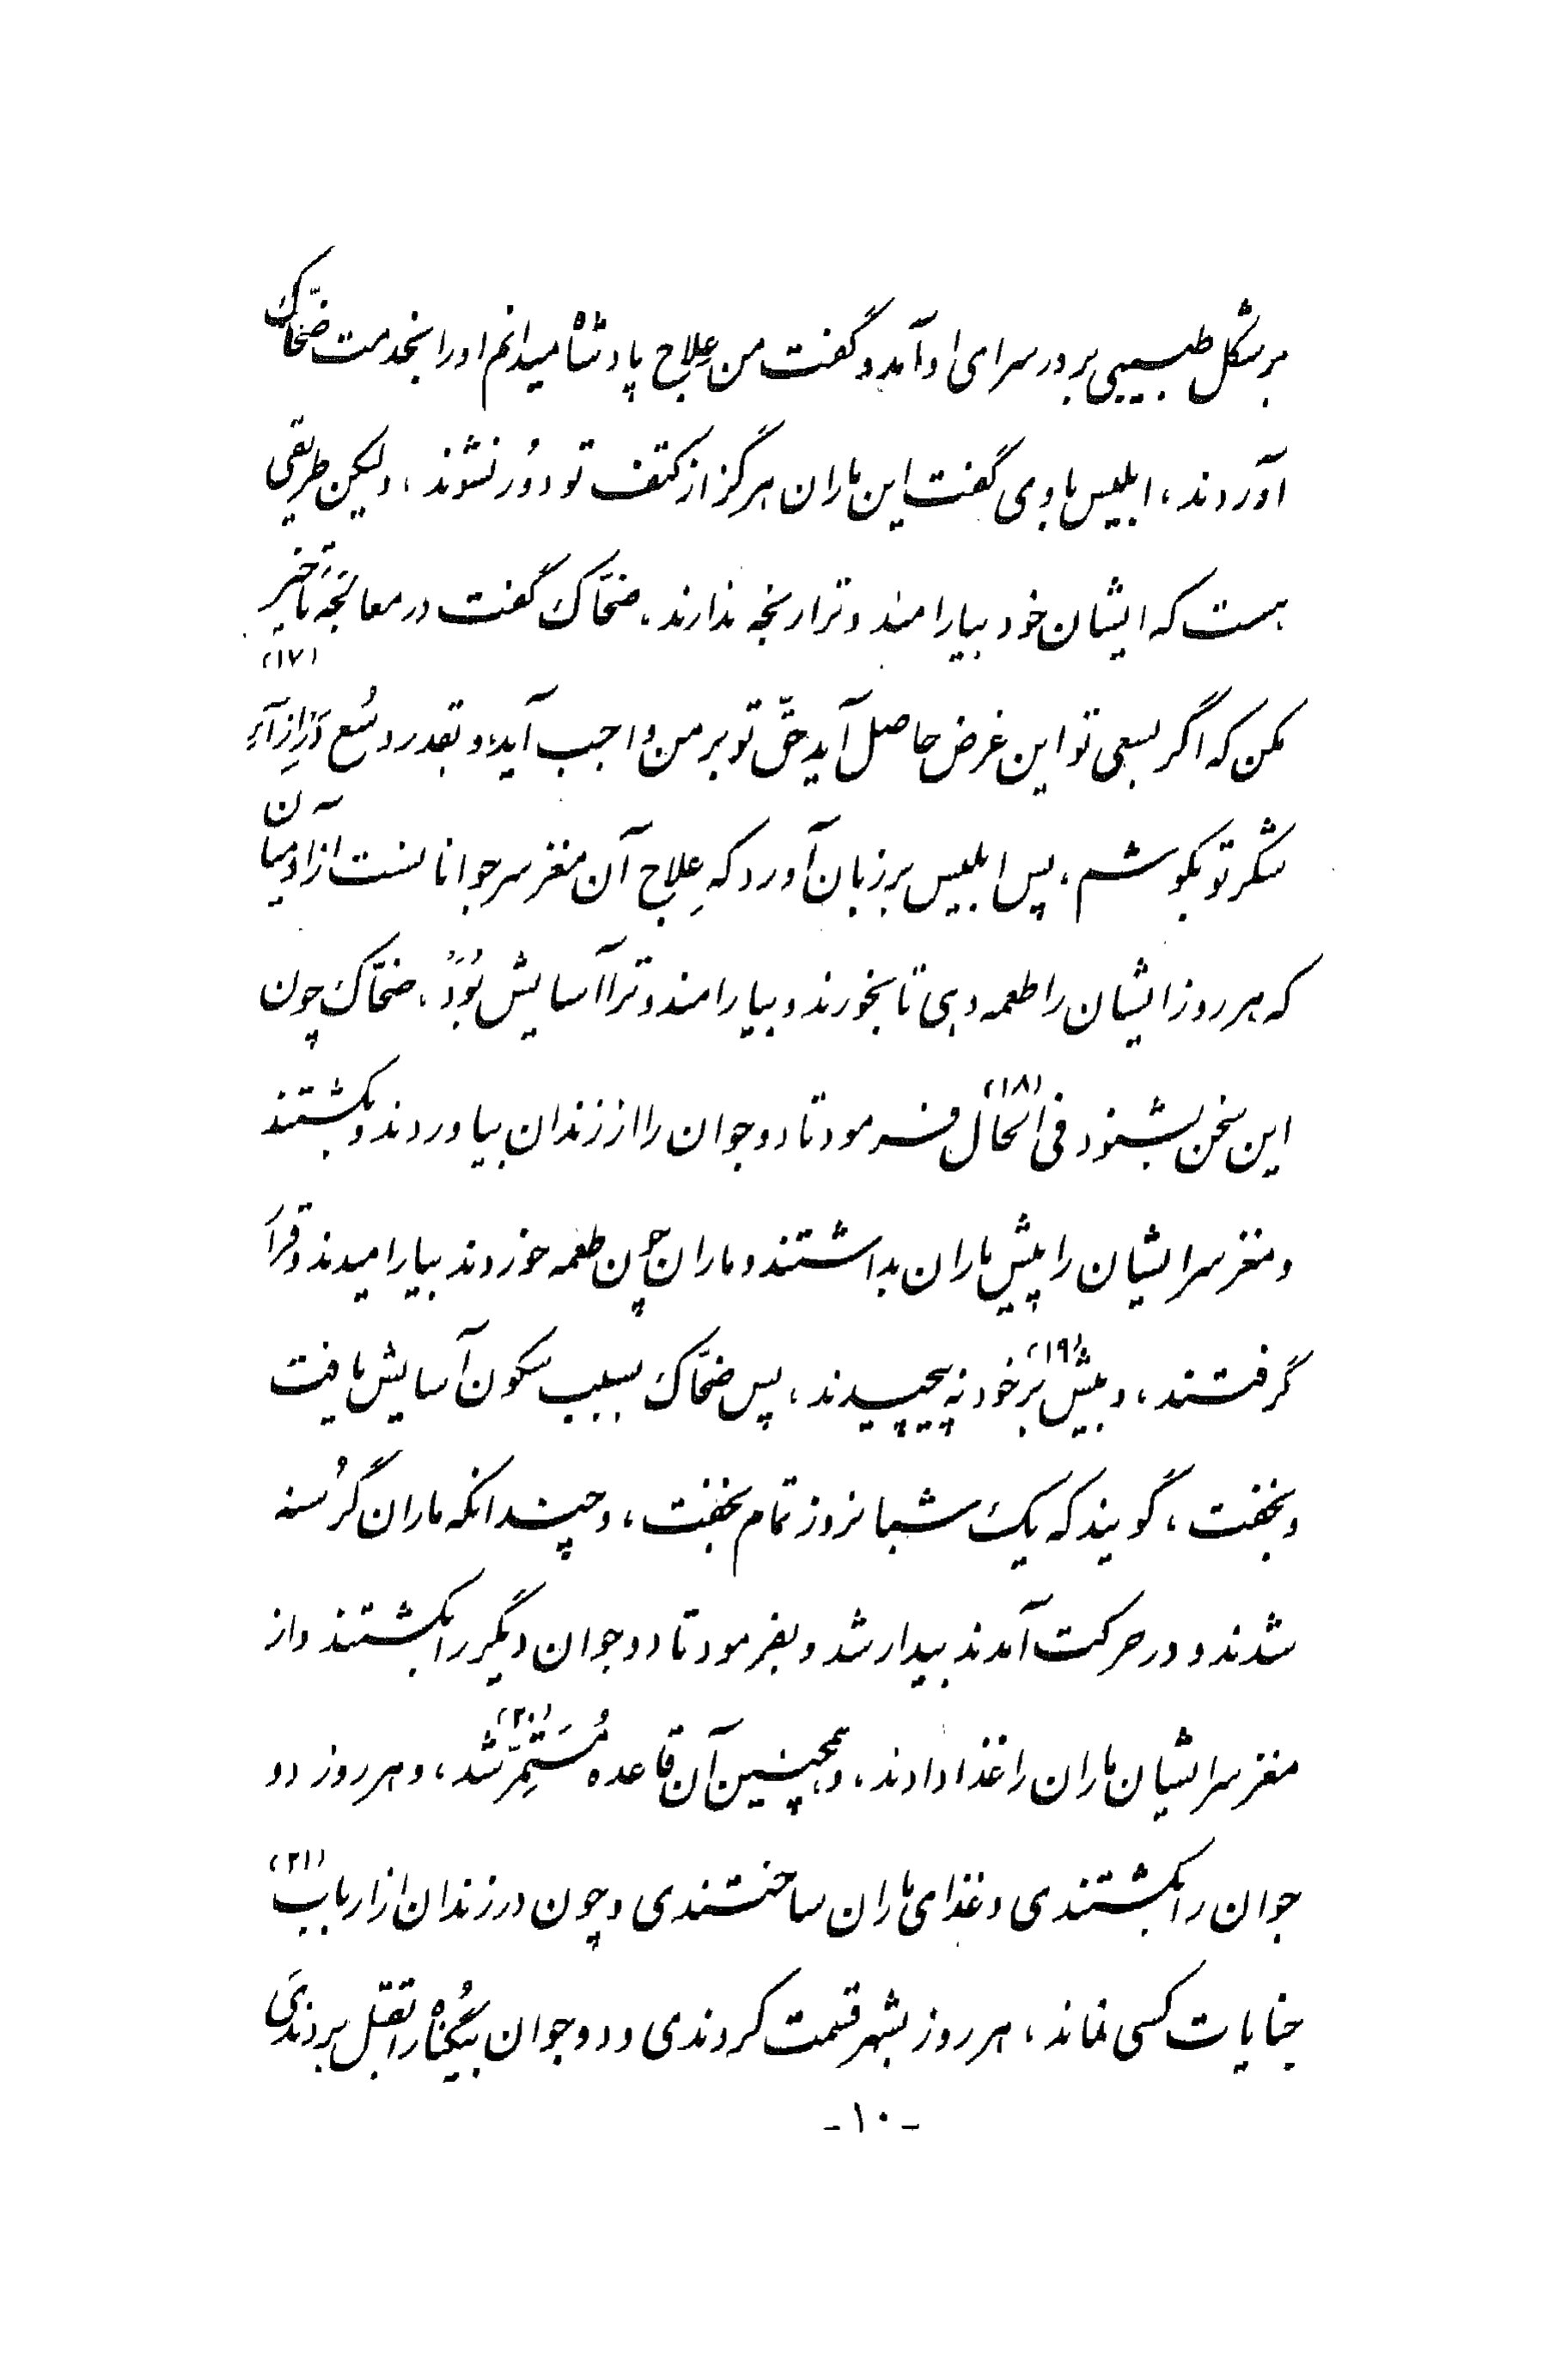 بر شکل طبیبی بر در سرای او آمد و گفت من عِلاج پادشاه میدانم او را بخدمت ضحّاک
آوردند، ابلیس با وی گفت این ماران هرگز از کتف تو دُور نشوند، ولیکن طریقی
هست که ایشان خود بیارامند و ترا رنجه ندارند، ضحّاک گفت در معالجَهٔ تأخیر
مکن که اگر بسعی تو این غرض حاصل آید حقّ تو بر من واجب آید، و بقدر وسُع (۱۷) در
شکر تو بکوشم، پس ابلیس بر زبان آورد که عِلاج آن مغز سر جوانانست از آدمیان
که هر روز ایشان را طعمه دهی تا بخورند و بیارامند و ترا آسایش بُوَد، ضحّاک چون
این سخن بشنود فی الحال (۱۸) فرمود تا دو جوان را از زندان بیاوردند و بکشتند
و مغز سر ایشان را پیش ماران بداشتند و ماران چون طعمه خوردند بیارامیدند و قرار
گرفتند، و بیش (۱۹) بر خود نه پیچیدند، پس ضحّاک بسبب سکون آسایش یافت
و بخفت، گویند که یک شبانروز تمام بخفت، و چندانکه ماران گرُسنه
شدند و در حرکت آمدند بیدار شد و بفرمود تا دو جوان دیگر را بکشتند و از
مغز سر ایشان ماران را غذا دادند، و همچنین آن قاعده مُستَمِرّ (۲۰) شد، و هر روز دو
جوان را بکشتندی و غذای ماران ساختندی و چون در زندان از ارباب (۲۱)
جنایات کسی نماند، هر روز بشهر قسمت کردندی و دو جوان بیگُناه را بقتل بردندی
-۱۰-